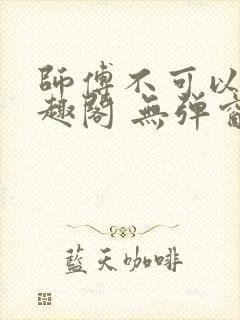 師傅不可以
趣閣 無彈
藍天咖啡